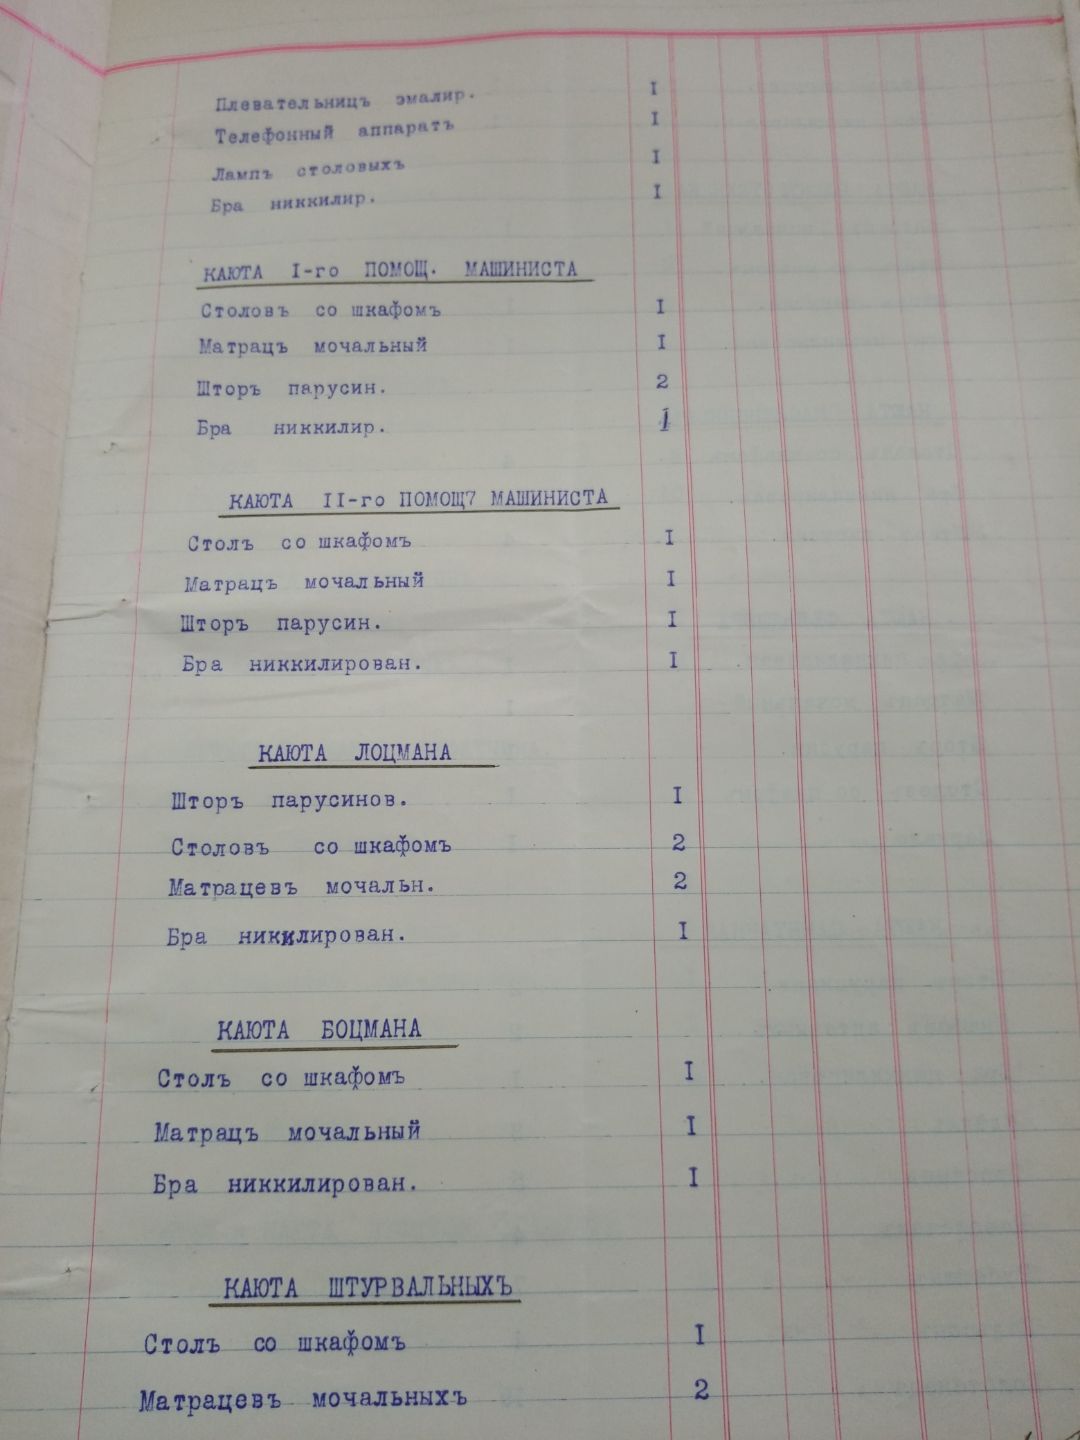 Плевательницъ эмалир. I
Телефонный аппаратъ I
Лампъ столовыхъ I
Бра никкилир. I
КАЮТА I-го ПОМОЩ. МАШИНИСТА
Столовъ со шкафомъ I
Матрацъ мочальный I
Шторъ парусин. 2
Бра никкилир. 1
КАЮТА II-го ПОМОЩ7 МАШИНИСТА
Столъ со шкафомъ I
Матрацъ мочальный I
Шторъ парусин. I
Бра никкилирован. I
КАЮТА ЛОЦМАНА
Шторъ парусинов. I
Столовъ со шкафомъ 2
Матрацевъ мочальн. 2
Бра никилирован. I
КАЮТА БОЦМАНА
Столъ со шкафомъ I
Матрацъ мочальный I
Бра никкилирован. I
КАЮТА ШТУРВАЛЬНЫХЪ
Столъ со шкафомъ I
Матрацевъ мочальныхъ 2